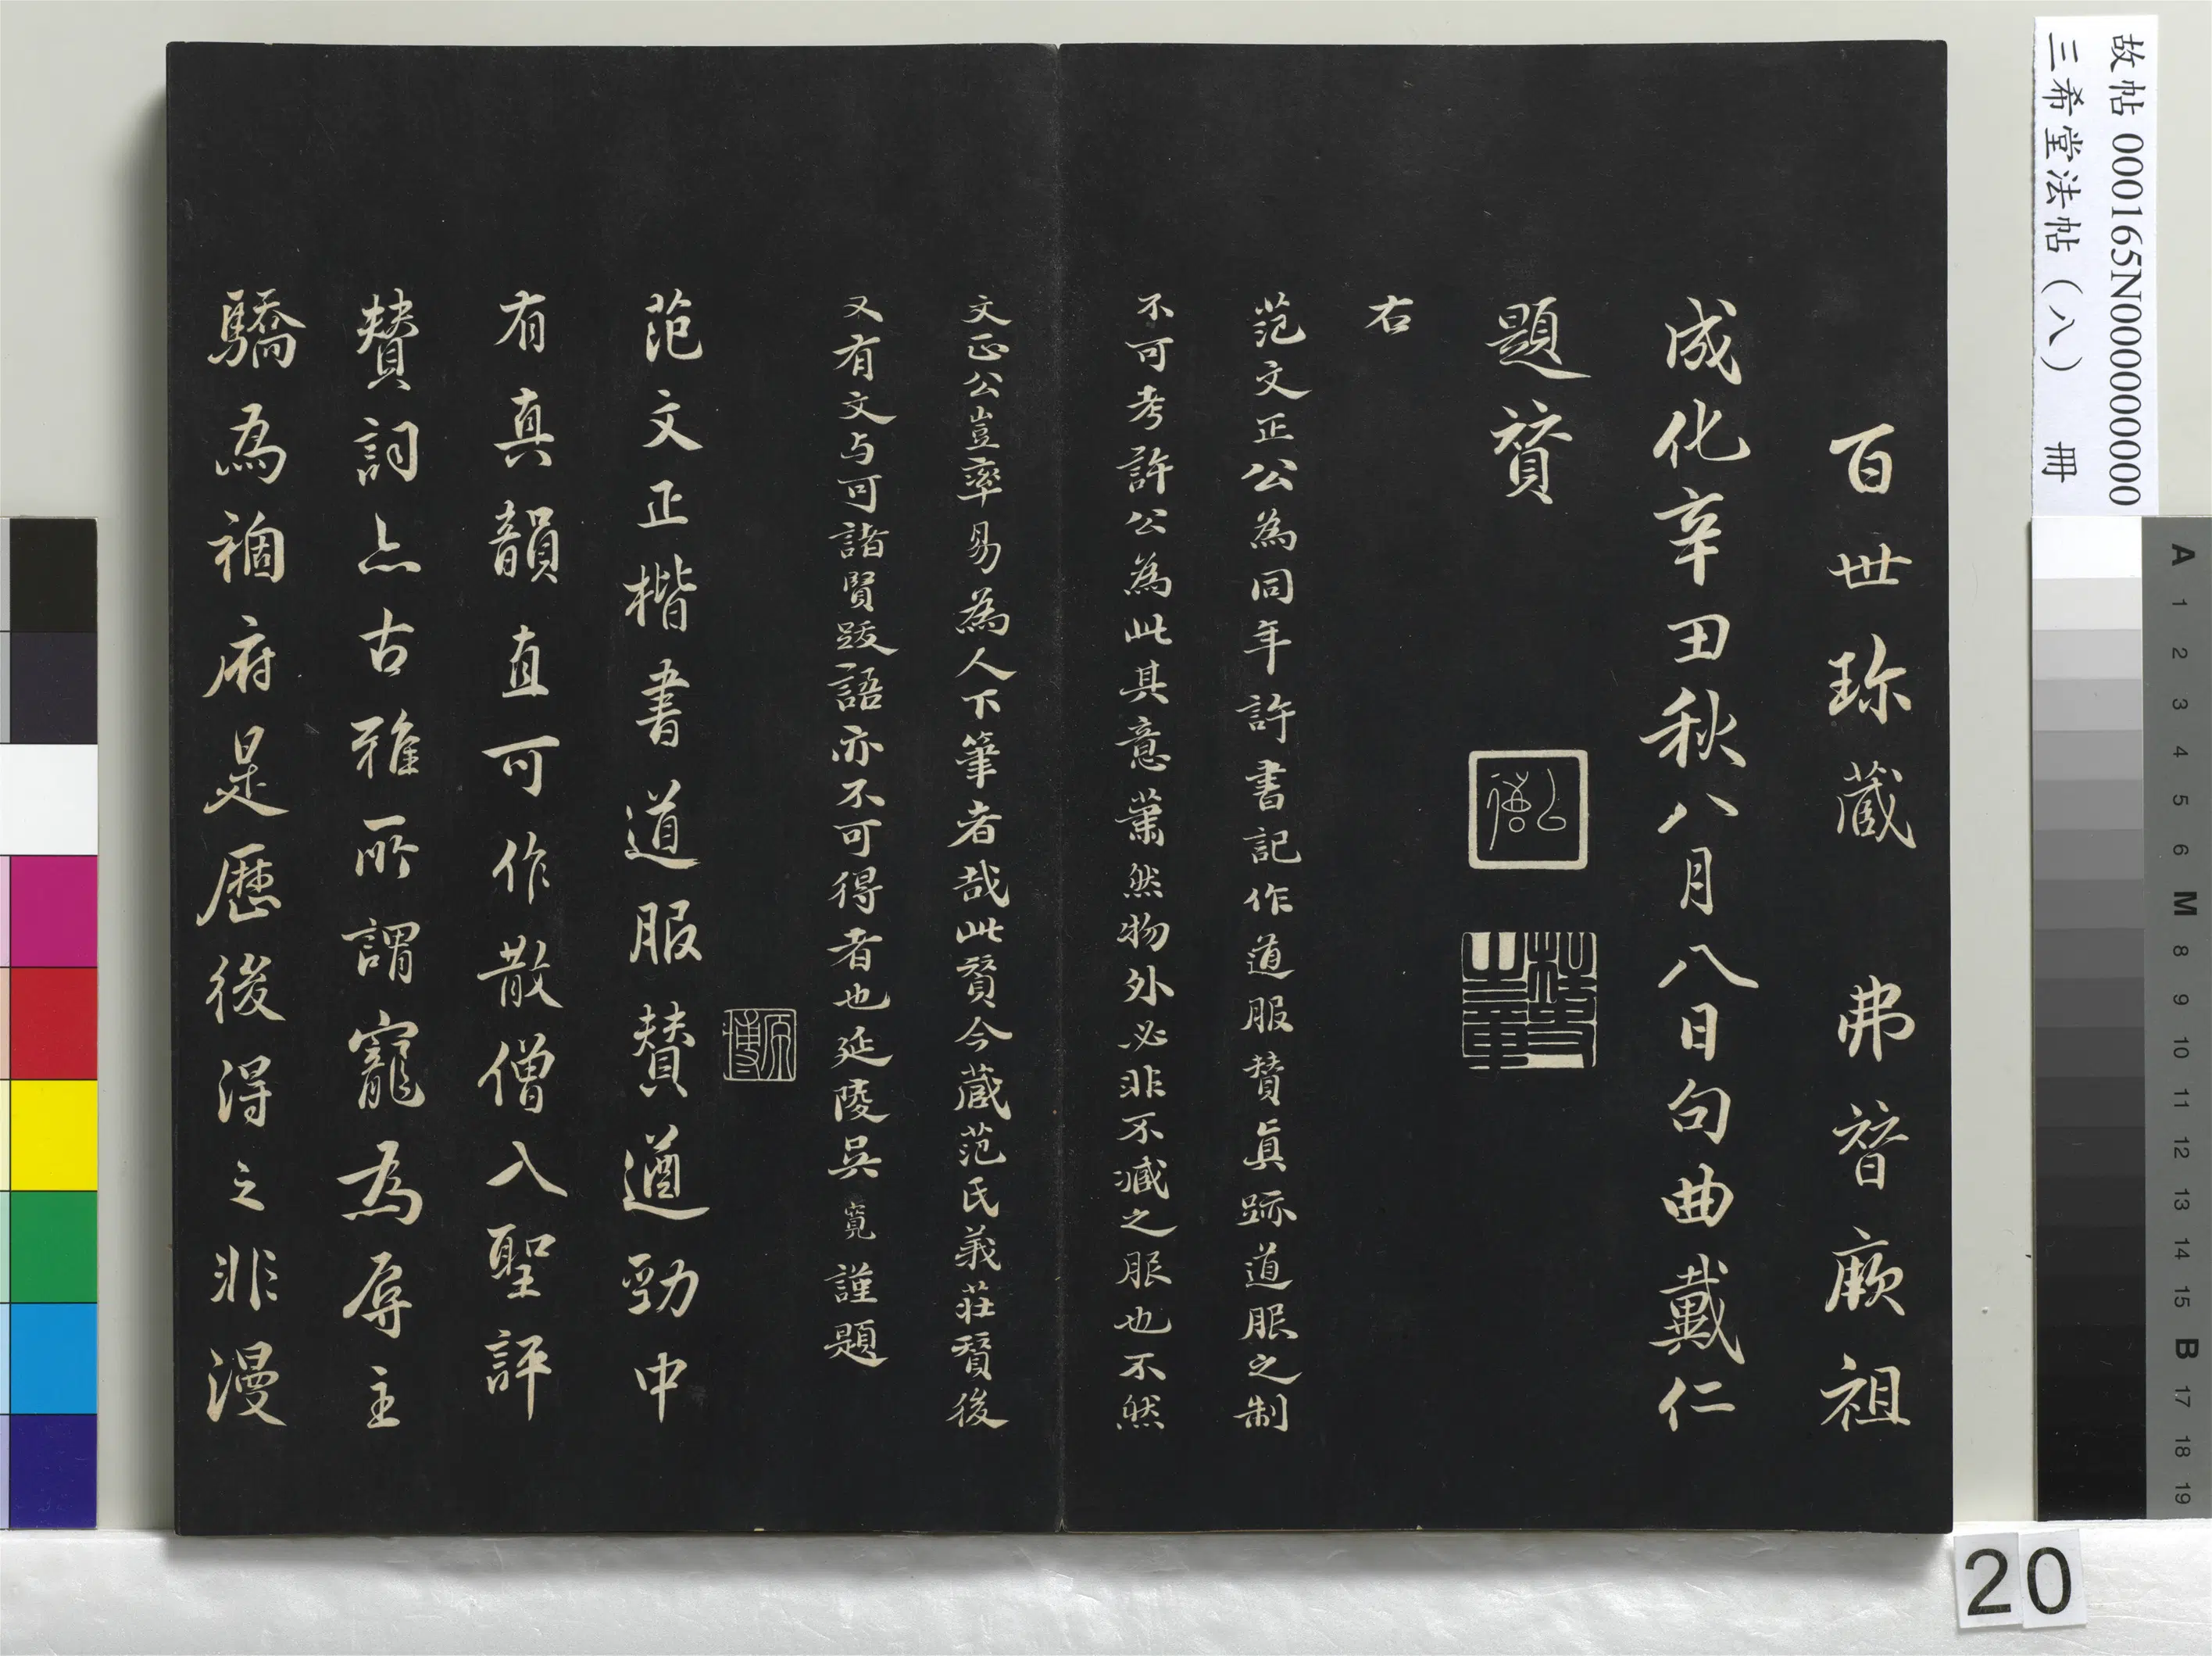 百世珎藏 弗替厥祖
成化辛丑秋八月八日句曲戴仁
題賛
右
范文正公為同年許書記作道服賛真跡道服之制
不可考許公為此其意蕭然物外必非不臧之服也不然
文正公豈率易為人下筆者哉此賛今藏范氏義莊賛後
又有文与可諸賢跋語亦不可得者也延陵吳寬謹題
原博
范文正楷書道服賛遒勁中
有真韻直可作散僧入聖評
賛詞亦古雅所謂寵為辱主
驕為禍府是歷後得之非漫
故帖 000165N000000000
三希堂法帖（八） 冊
20
A 1 2 3 4 5 6 M 8 9 10 11 12 13 14 15 B 17 18 19